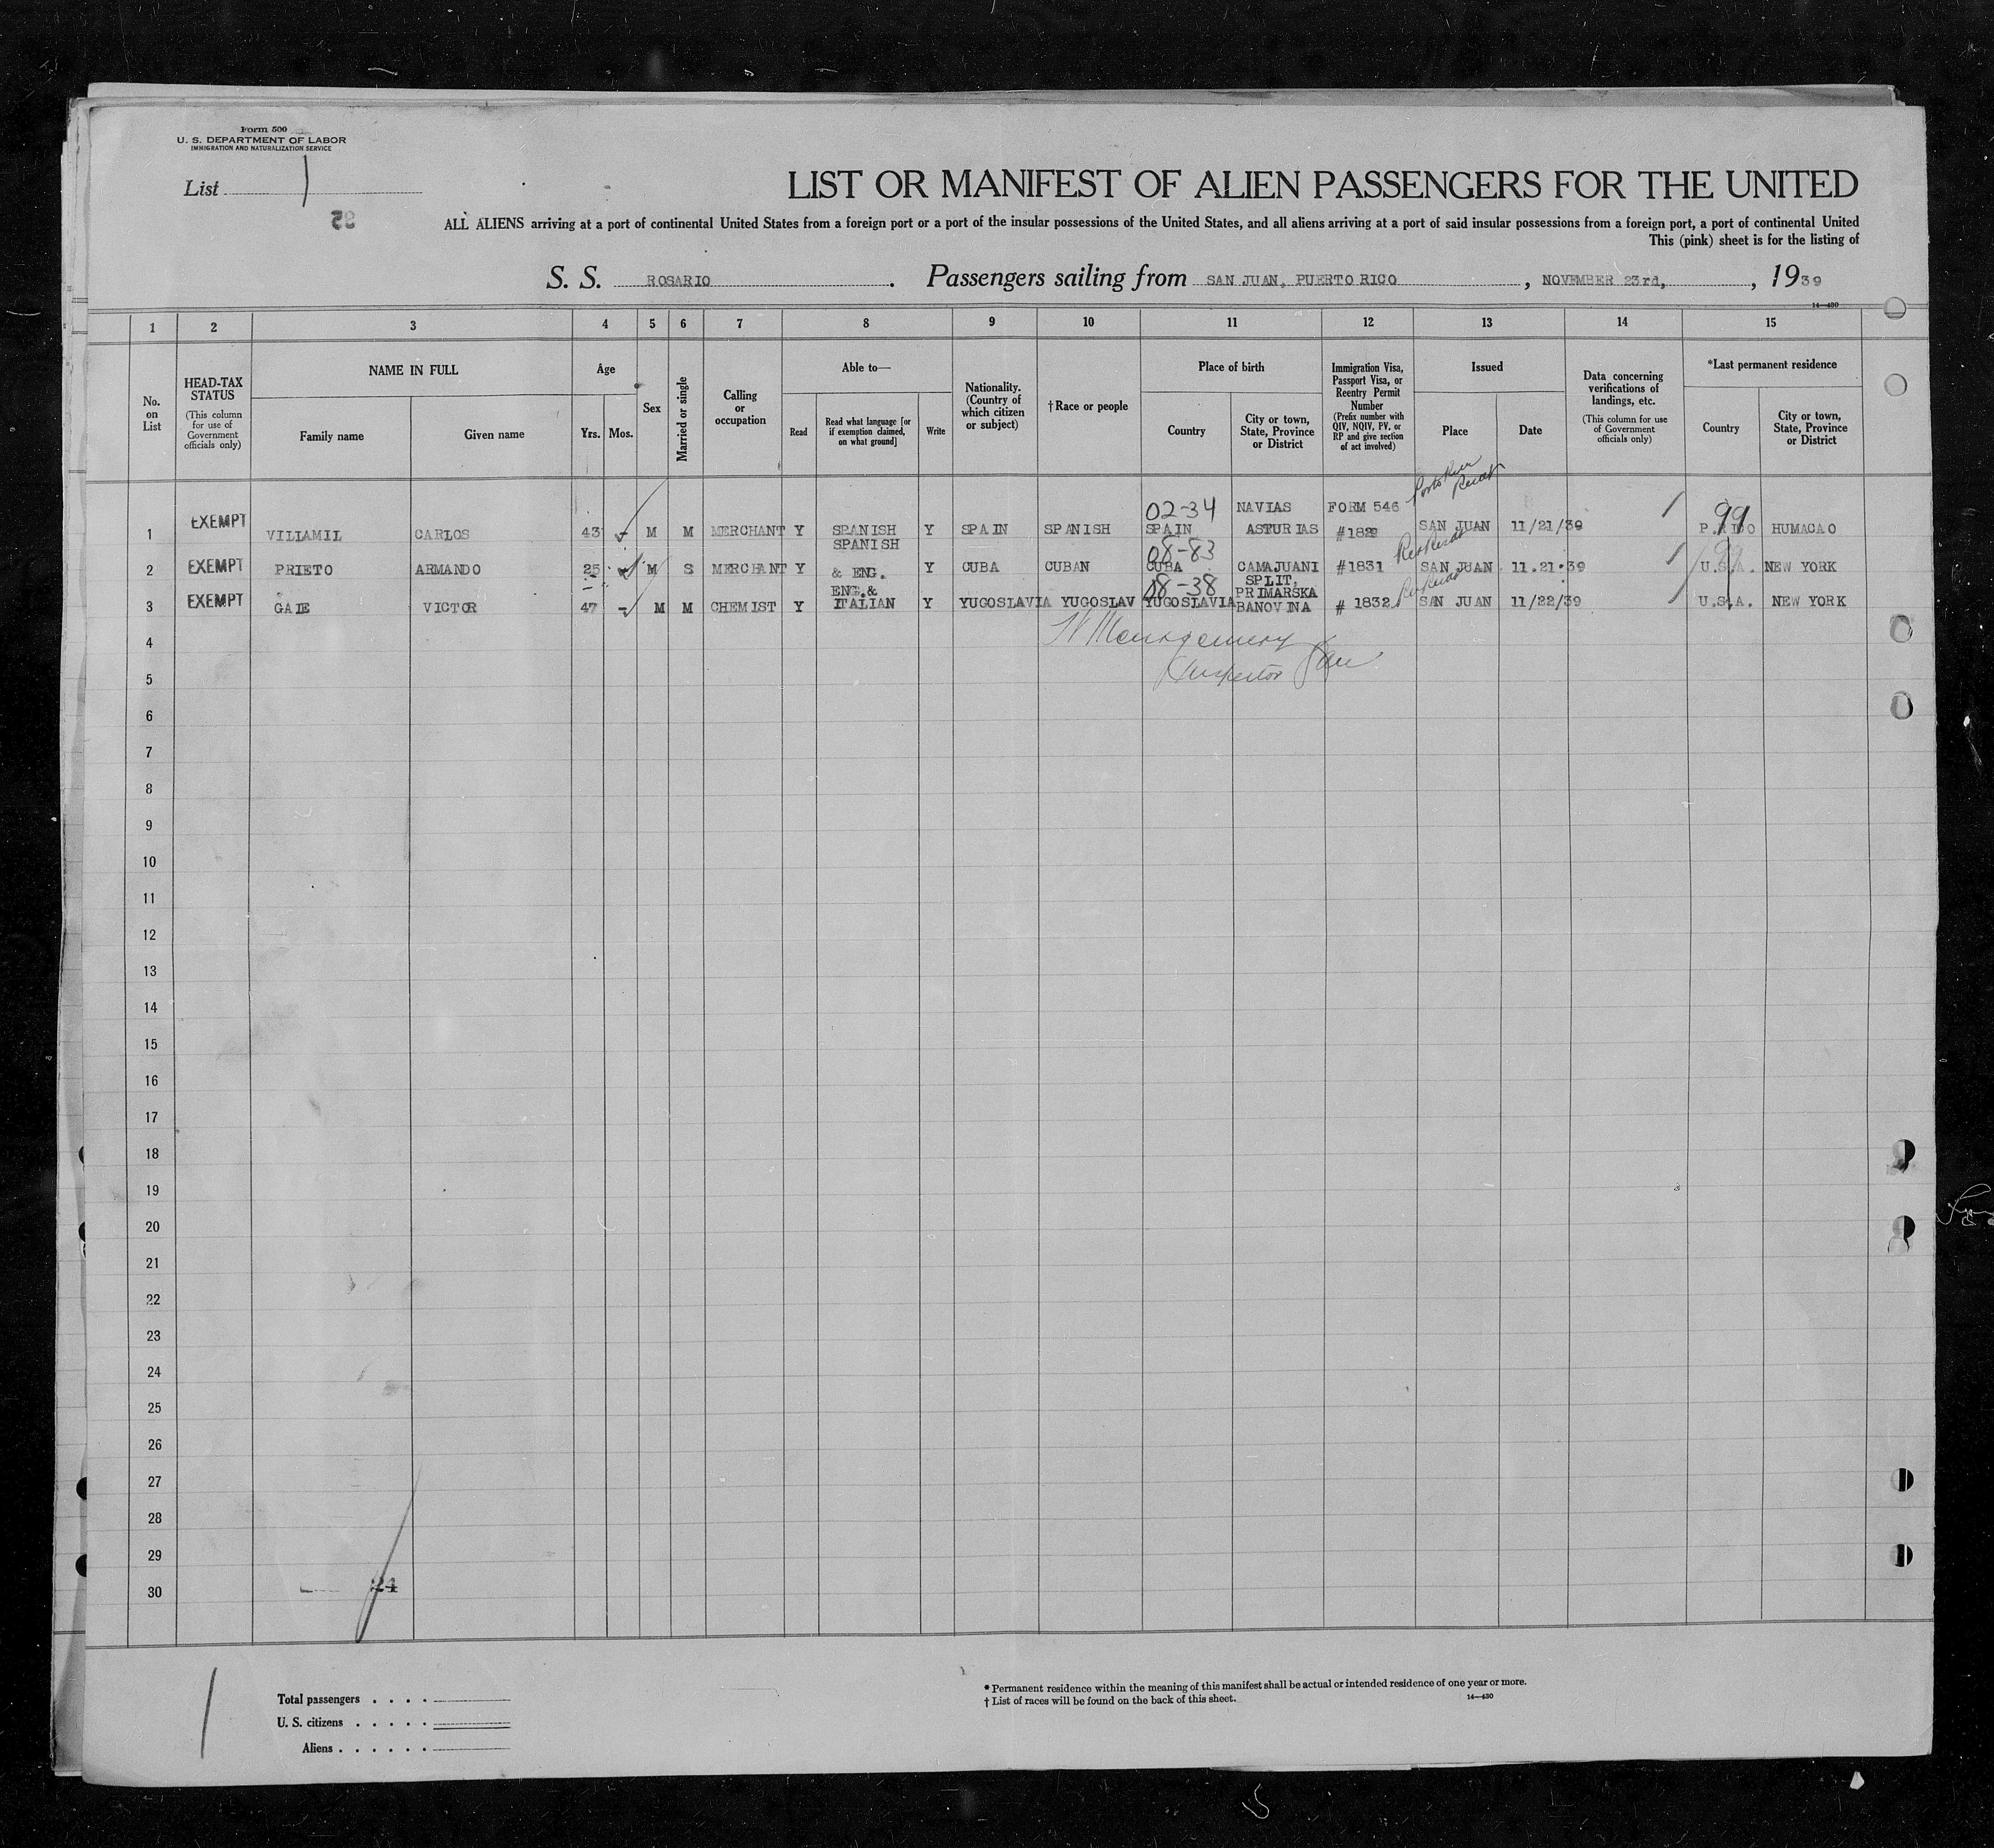 Form 500
U. S. DEPARTMENT OF LABOR
IMMIGRATION AND NATURALIZATION SERVICE
List 1
LIST OR MANIFEST OF ALIEN PASSENGERS FOR THE UNITED
ALL ALIENS arriving at a port of continental United States from a foreign port or a port of the insular possessions of the United States, and all aliens arriving at a port of said insular possessions from a foreign port, a port of continental United
This (pink) sheet is for the listing of
S. S. ROSARIO. Passengers sailing from SAN JUAN, PUERTO RICO, NOVEMBER 23rd, , 1939
14—430
1 2 3 4 5 6 7 8 9 10 11 12 13 14 15
No. on List
HEAD-TAX STATUS (This column for use of Government officials only)
NAME IN FULL
Family name
Given name
Age
Yrs. Mos.
Sex
Married or single
Calling or occupation
Able to—
Read
Read what language [or if exemption claimed, on what ground]
Write
Nationality. (Country of which citizen or subject)
†Race or people
Place of birth
Country
City or town, State, Province or District
Immigration Visa, Passport Visa, or Reentry Permit Number (Prefix number with QIV, NQIV, PV, or RP and give section of act involved)
Issued
Place
Date
Data concerning verifications of landings, etc. (This column for use of Government officials only)
*Last permanent residence
Country
City or town, State, Province or District
02-34 NAVIAS FORM 546 99
1 EXEMPT VILLAMIL CARLOS 43 M M MERCHANT Y SPANISH Y SPAIN SPANISH SPAIN ASTURIAS #1829 SAN JUAN 11/21/39 P.RICO HUMACAO
SPANISH 08-83
2 EXEMPT PRIETO ARMANDO 25 M S MERCHANT Y & ENG. Y CUBA CUBAN CUBA CAMAJUANI #1831 SAN JUAN 11.21.39 U.S.A. NEW YORK
ENG.& 08-38 SPLIT, PRIMARSKA
3 EXEMPT GAIE VICTOR 47 M M CHEMIST Y ITALIAN Y YUGOSLAVIA YUGOSLAV YUGOSLAVIA BANOVINA # 1832 SAN JUAN 11/22/39 U.S.A. NEW YORK
4 Montgomery
5 Inspector
6
7
8
9
10
11
12
13
14
15
16
17
18
19
20
21
22
23
24
25
26
27
28
29
30 24
Total passengers
U. S. citizens
Aliens
* Permanent residence within the meaning of this manifest shall be actual or intended residence of one year or more.
† List of races will be found on the back of this sheet.
14—430